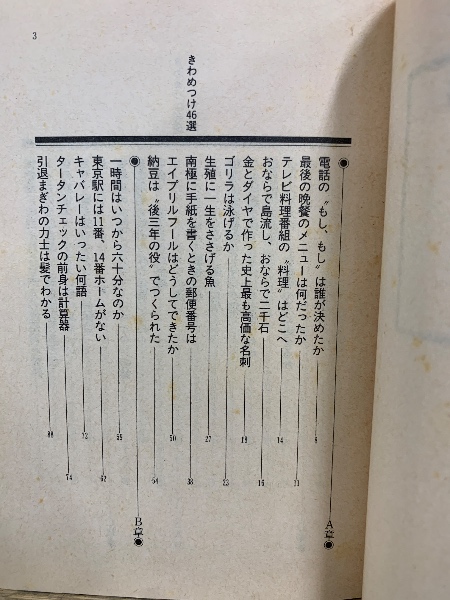 3
1
きわめつけ46選
A章
電話の〝もし、もし〟は誰が決めたか 8
最後の晩餐のメニューは何だったか 11
テレビ料理番組の〝料理〟はどこへ 14
おならで島流し、おならで二千石 16
金とダイヤで作った史上最も高価な名刺 18
ゴリラは泳げるか 23
生殖に一生をささげる魚 27
南極に手紙を書くときの郵便番号は 38
エイプリルフールはどうしてできたか 50
納豆は〝後三年の役〟でつくられた 54
B章
一時間はいつから六十分なのか 59
東京駅には11番、14番ホームがない 62
キャバレーはいったい何語 72
タータンチェックの前身は計算器 74
引退まぎわの力士は髪でわかる 88